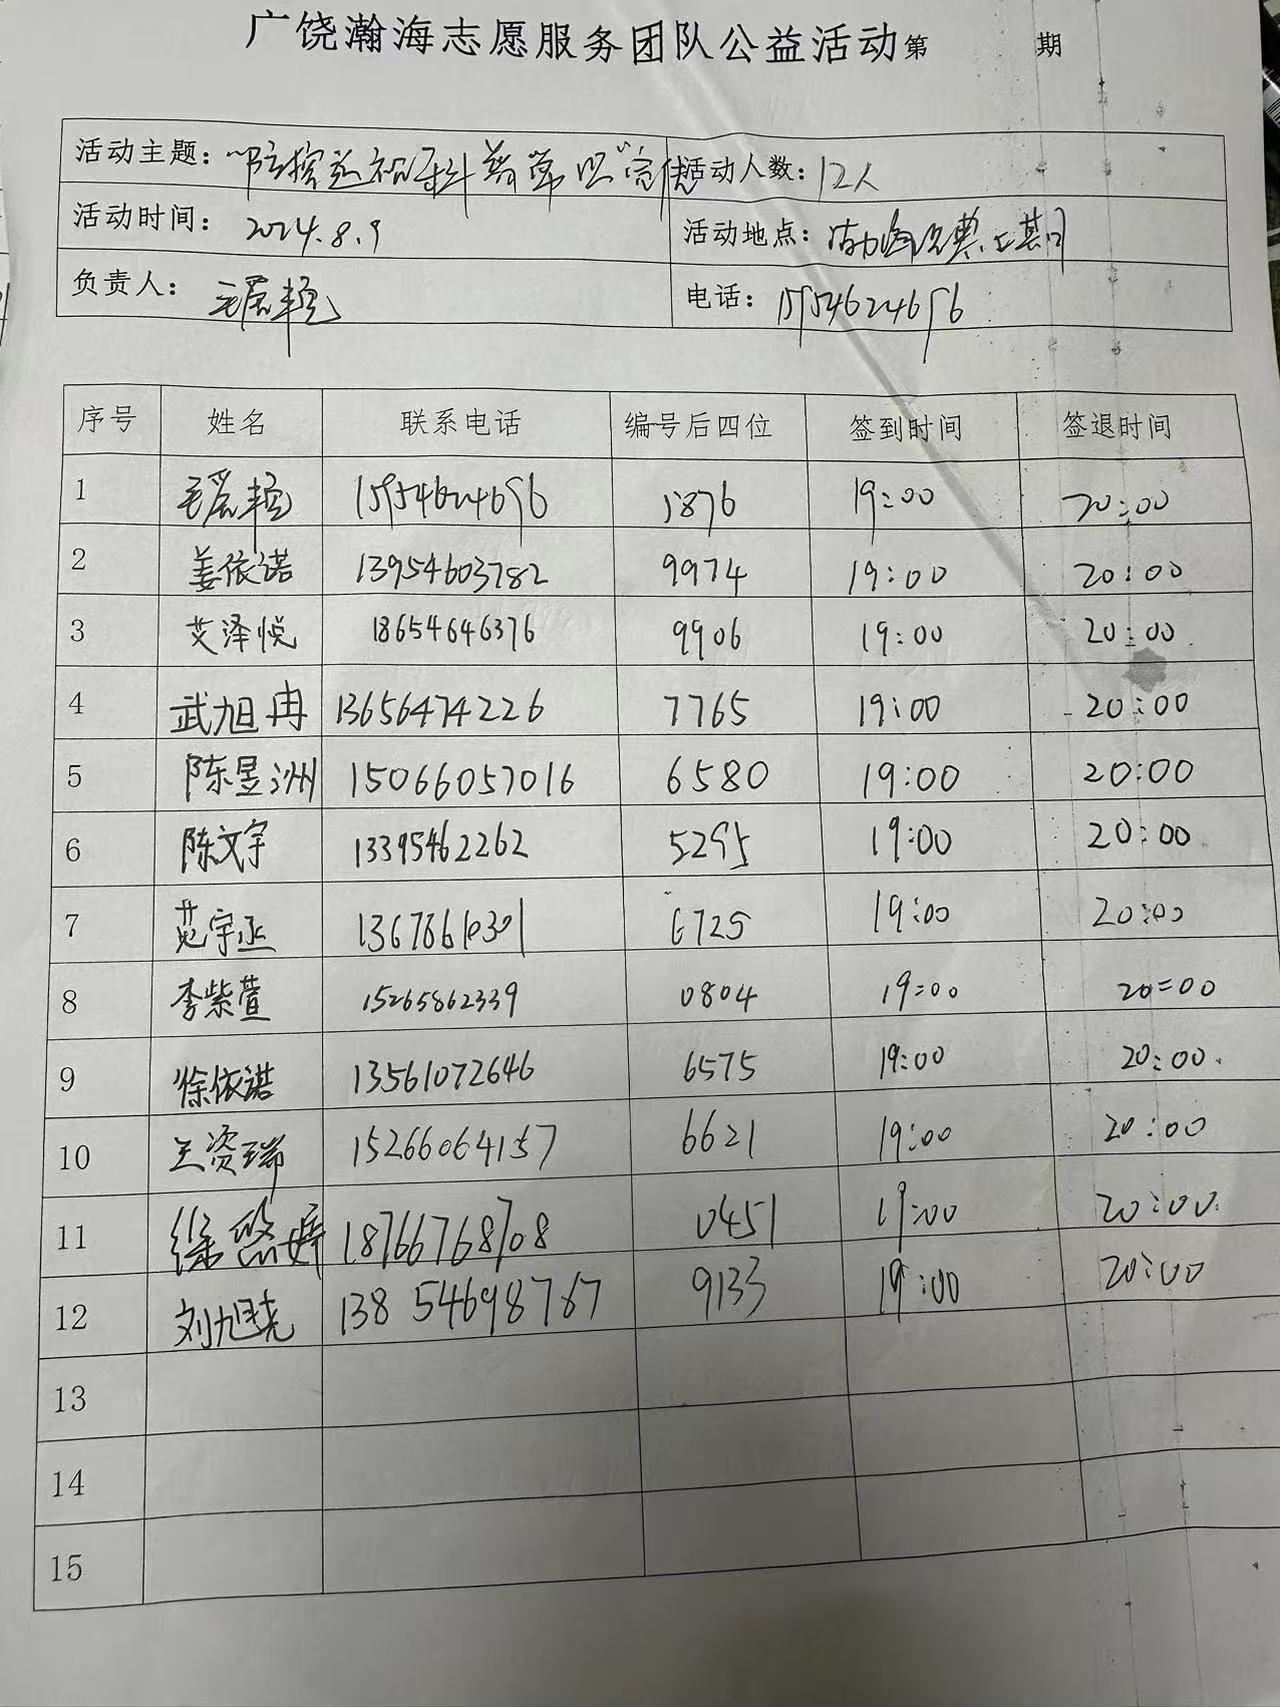 广饶瀚海志愿服务团队公益活动第 期
活动主题： 活动人数：12人
活动时间：2024.8.9 活动地点：
负责人： 电话：15954624696
序号 姓名 联系电话 编号后四位 签到时间 签退时间
1 15954624696 1876 19:00 20:00
2 姜依诺 13954603782 9974 19:00 20:00
3 艾泽悦 18654646376 9906 19:00 20:00
4 武旭冉 13656474226 7765 19:00 20:00
5 陈昱洲 15066057016 6580 19:00 20:00
6 陈文宇 13395462262 5295 19:00 20:00
7 范宇丞 6725 19:00 20:00
8 李紫萱 15265862339 0804 19:00 20:00
9 徐依诺 13561072646 6575 19:00 20:00
10 王资瑞 15266064157 6621 19:00 20:00
11 徐悠婷 18766768708 0451 19:00 20:00
12 刘旭尧 13854698767 9133 19:00 20:00
13
14
15